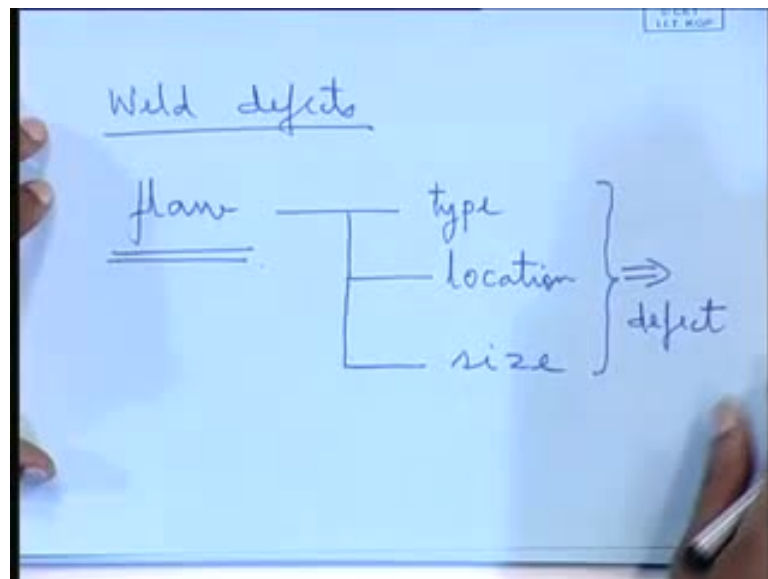 I.I.T. KGP
Weld defects
flaw
type
location
size
defect